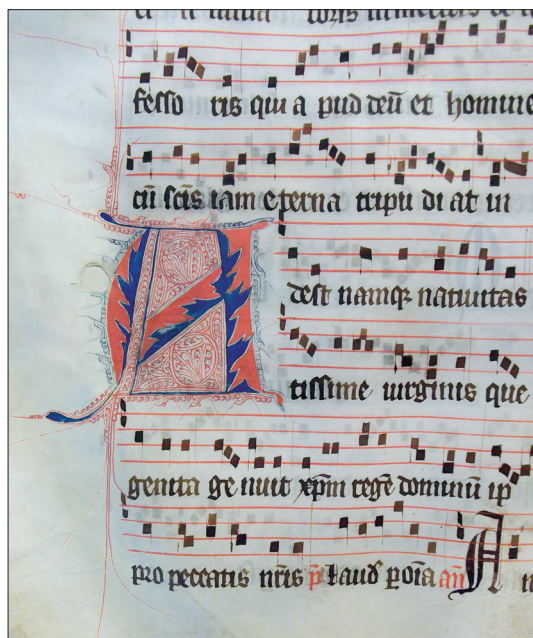 fesso ris qui a pud deū et homine
cū scīs iam eterna tripu di at in
Adest namqꝫ natiuitas
tissime uirginis que
genita ge nuit xp̄m regē dominū ip
pro peccatis nr̄is p̄ Laud p̱ oīa an̄ A